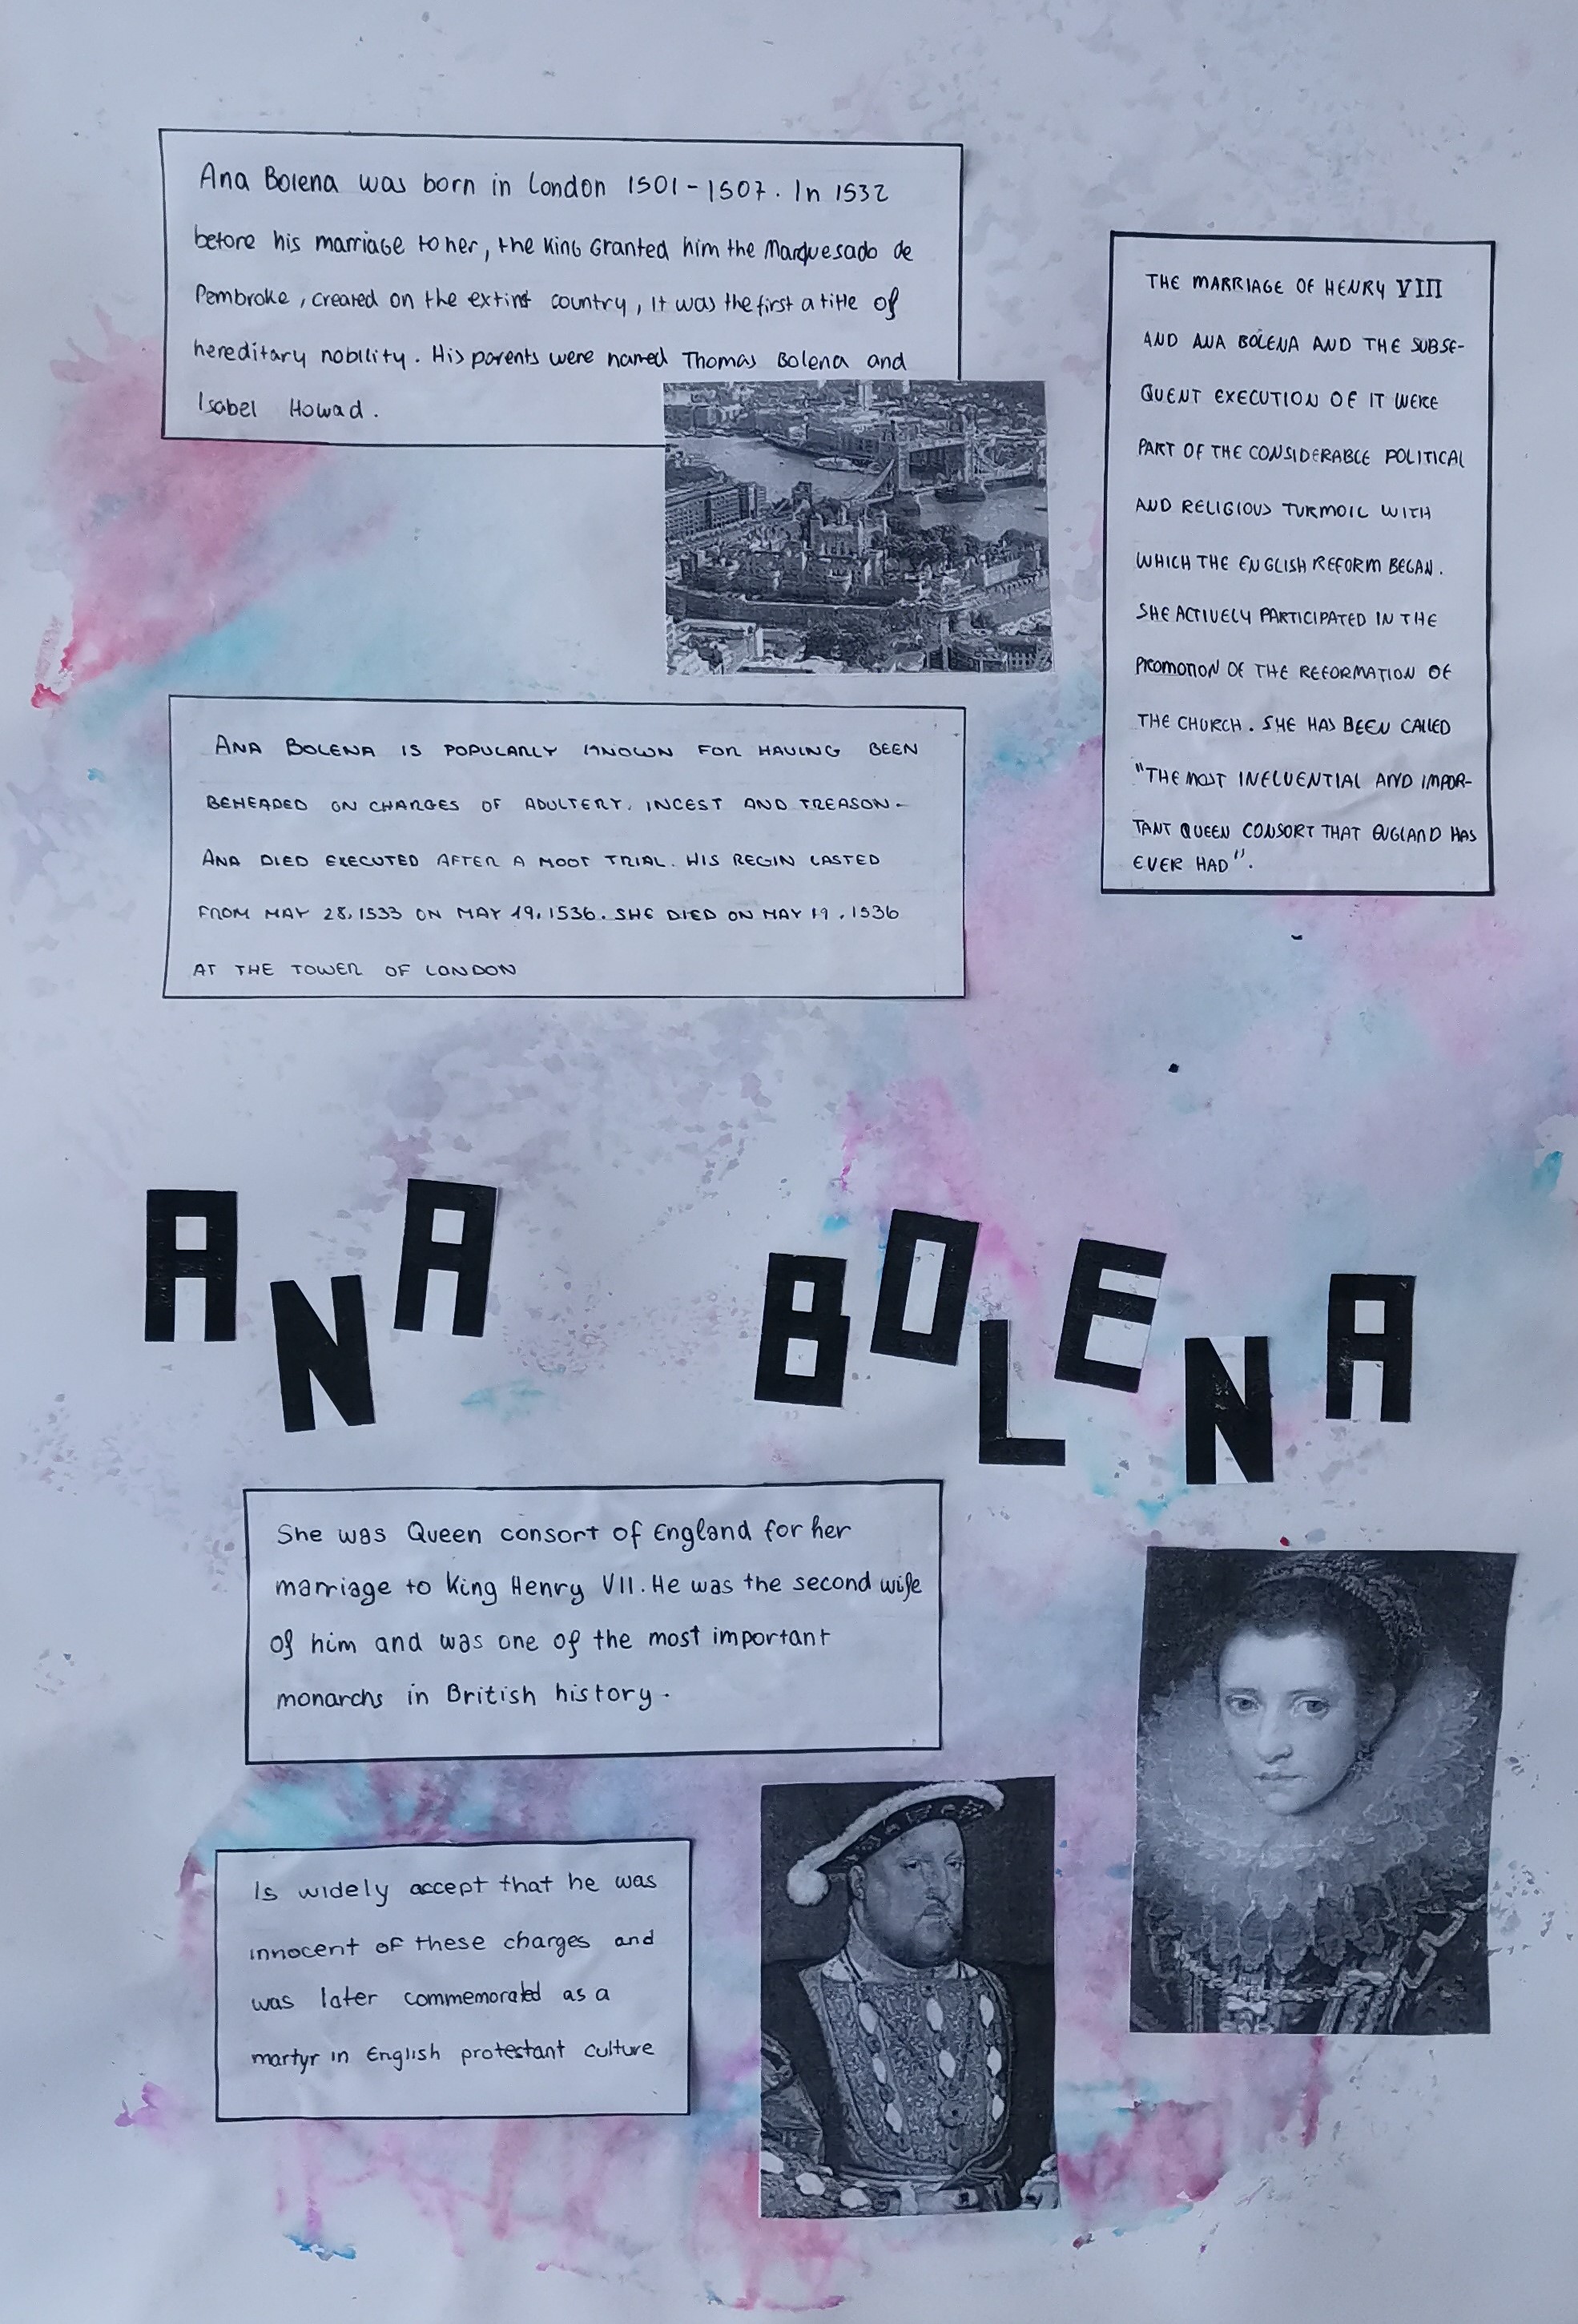 Ana Bolena was born in London 1501-1507. In 1532
before his marriage to her, the King Granted him the Marquesado de
Pembroke, created on the extinst country, It was the first a title of
hereditary nobility. His parents were named Thomas Bolena and
Isabel Howad.
THE MARRIAGE OF HENRY VIII
AND ANA BOLENA AND THE SUBSE-
QUENT EXECUTION OF IT WERE
PART OF THE CONSIDERABLE POLITICAL
AND RELIGIOUS TURMOIL WITH
WHICH THE ENGLISH REFORM BEGAN.
SHE ACTIVELY PARTICIPATED IN THE
PROMOTION OF THE REFORMATION OF
THE CHURCH. SHE HAS BEEN CALLED
"THE MOST INFLUENTIAL AND IMPOR-
TANT QUEEN CONSORT THAT ENGLAND HAS
EVER HAD".
ANA BOLENA IS POPULARLY KNOWN FOR HAVING BEEN
BEHEADED ON CHARGES OF ADULTERY, INCEST AND TREASON-
ANA DIED EXECUTED AFTER A MOOT TRIAL. HIS REGIN LASTED
FROM MAY 28, 1533 ON MAY 19, 1536. SHE DIED ON MAY 19, 1536
AT THE TOWER OF LONDON
ANA BOLENA
She was Queen consort of England for her
marriage to King Henry VII. He was the second wife
of him and was one of the most important
monarchs in British history.
Is widely accept that he was
innocent of these charges and
was later commemorated as a
martyr in English protestant culture